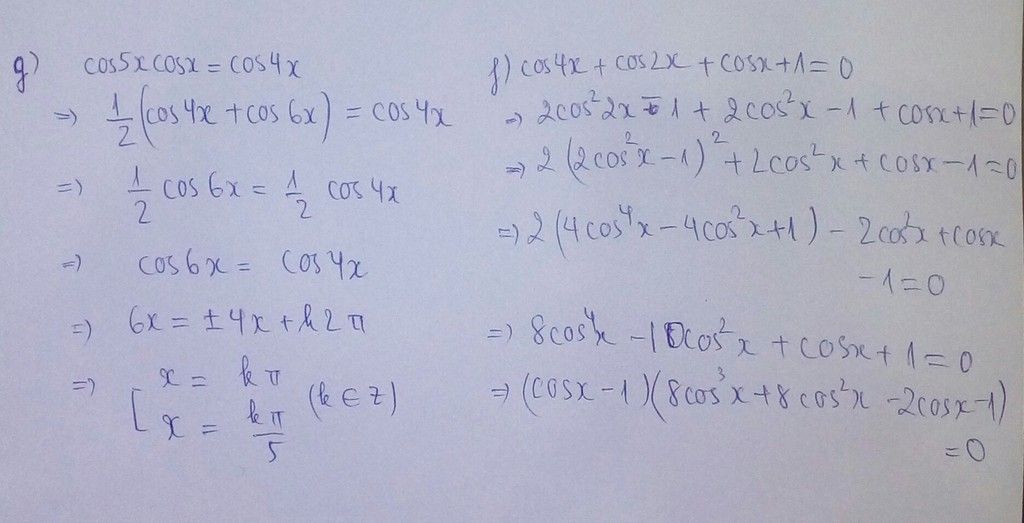 g) cos5x cosx = cos4x
=> 1/2 (cos4x + cos6x) = cos4x
=> 1/2 cos6x = 1/2 cos4x
=> cos6x = cos4x
=> 6x = ±4x + k2π
=> [ x = kπ
x = kπ/5 (k ∈ z)
f) cos4x + cos2x + cosx + 1 = 0
=> 2cos²2x - 1 + 2cos²x - 1 + cosx + 1 = 0
=> 2(2cos²x - 1)² + 2cos²x + cosx - 1 = 0
=> 2(4cos⁴x - 4cos²x + 1) - 2cos²x + cosx
- 1 = 0
=> 8cos⁴x - 10cos²x + cosx + 1 = 0
=> (cosx - 1)(8cos³x + 8cos²x - 2cosx - 1)
= 0